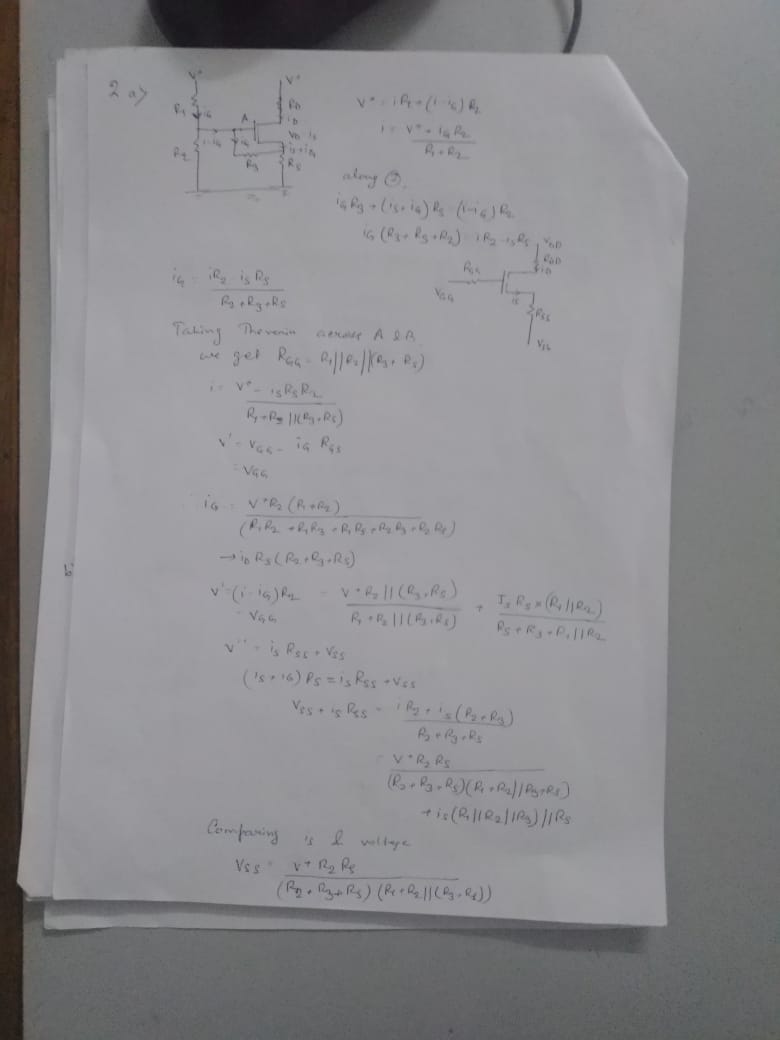 2 a)
V⁺ V⁺
R₁ iG A RD
iD
R₂ i-iG iG VD is
is+iG
R₃ Rs
V⁺ = iR₁ + (i-iG) R₂
i = V⁺ + iG R₂ / R₁+R₂
along ②,
iG R₃ + (is+iG) Rs = (i-iG) R₂
iG (R₃+Rs+R₂) = iR₂ - isRs
VDD
RDD
iD
RGG
VGG is
RSS
VSS
iG = iR₂ - is Rs / R₂+R₃+Rs
Taking Thevenin across A &
we get RGG = R₁||R₂||(R₃+Rs)
i = V⁺ - isRsR₂ / R₁+R₂||(R₃+Rs)
V' = VGG - iG RGS
= VGG
iG = V⁺R₂ (R₁+R₂) / (R₁R₂ + R₁R₃ + R₁Rs + R₂R₃ + R₂Rs)
→ iD Rs (R₂+R₃+Rs)
b
V' = (i-iG)R₂ = V⁺R₂||(R₃+Rs) / R₁+R₂||(R₃+Rs) + Is Rs × (R₁||R₂) / Rs+R₃+R₁||R₂
= VGG
V'' = is RSS + VSS
(is+iG) Rs = is RSS + VSS
VSS + is RSS = iR₂ + is(R₂+R₃) / R₂+R₃+Rs
= V⁺R₂Rs / (R₂+R₃+Rs)(R₁+R₂||R₃+Rs)
+ is(R₁||R₂||R₃)||Rs
Comparing is & voltage
VSS = V⁺R₂Rs / (R₂+R₃+Rs) (R₁+R₂||(R₃+Rs))